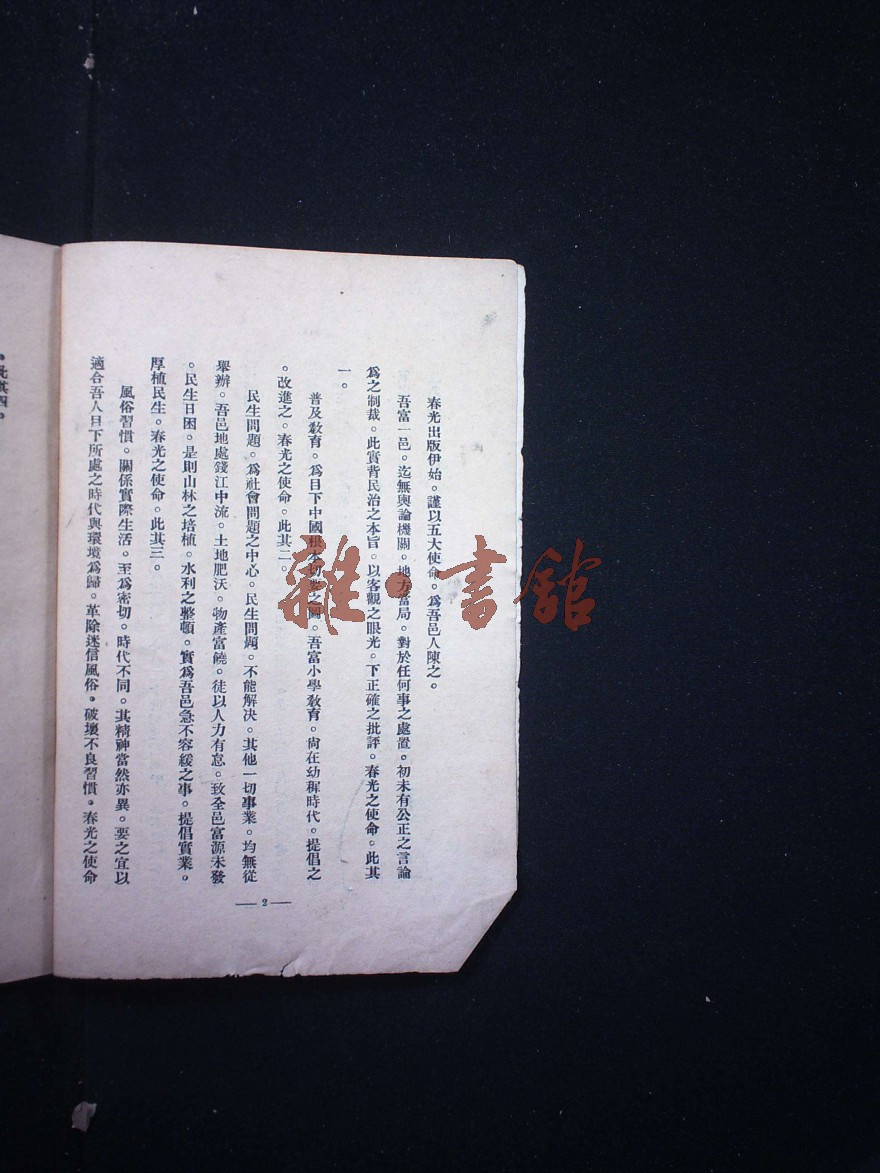 春光出版伊始。謹以五大使命。爲吾邑人陳之。
吾富一邑。迄無輿論機關。地方當局。對於任何事之處置。初未有公正之言論
爲之制裁。此實背民治之本旨。以客觀之眼光。下正確之批評。春光之使命。此其
一。
普及敎育。爲目下中國根本切要之圖。吾富小學敎育。尙在幼稺時代。提倡之
。改進之。春光之使命。此其二。
民生問題。爲社會問題之中心。民生問題。不能解决。其他一切事業。均無從
舉辦。吾邑地處錢江中流。土地肥沃。物產富饒。徒以人力有怠。致全邑富源未發
。民生日困。是則山林之培植。水利之整頓。實爲吾邑急不容緩之事。提倡實業。
厚植民生。春光之使命。此其三。
風俗習慣。關係實際生活。至爲密切。時代不同。其精神當然亦異。要之宜以
適合吾人目下所處之時代與環境爲歸。革除迷信風俗。破壞不良習慣。春光之使命
— 2 —
。此其四。
雜·書館